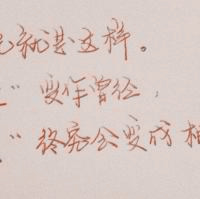 就是这样。
” 变作曾经，
” 终究会变成